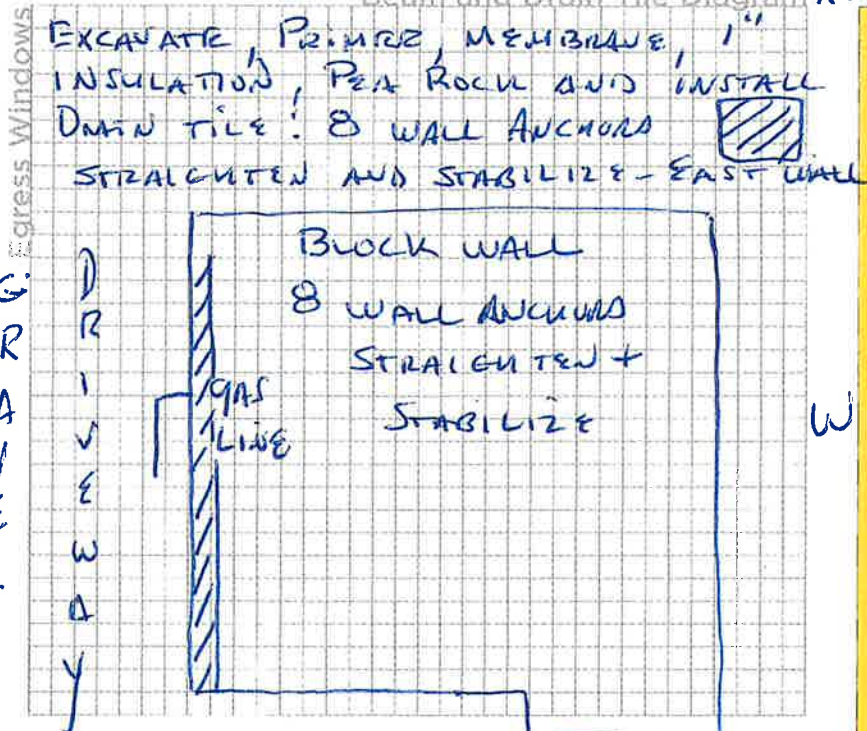 EXCAVATE, PRIMER, MEMBRANE, 1"
INSULATION, PEA ROCK AND INSTALL
DRAIN TILE! 8 WALL ANCHORS
STRAIGHTEN AND STABILIZE - EAST WALL
Egress Windows
BLOCK WALL
8 WALL ANCHORS
STRAIGHTEN +
STABILIZE
GAS
LINE
DRIVEWAY
W